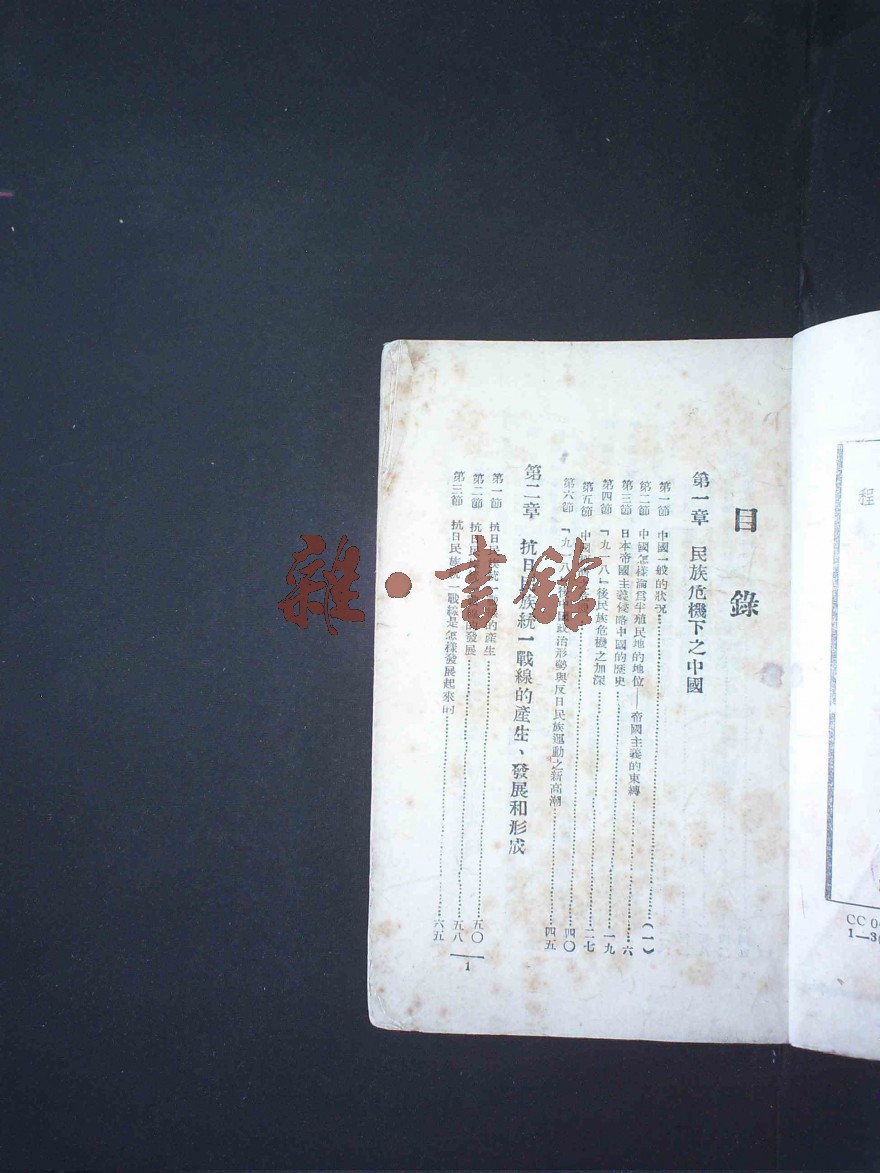 目錄
第一章 民族危機下之中國
第一節 中國一般的狀況……(一)
第二節 中國怎樣淪爲半殖民地的地位——帝國主義的束縛……六
第三節 日本帝國主義侵略中國的歷史……一九
第四節 「九一八」後民族危機之加深……二七
第五節 中國……四〇
第六節 「九一八」後中國政治形勢與反日民族運動之新高潮……四五
第二章 抗日民族統一戰線的產生、發展和形成
第一節 抗日民族統一戰線的產生……五〇
第二節 抗日民……的發展……五八
第三節 抗日民族統一戰線是怎樣發展起來的……六五
1
雜·書館
程
CC 04
1—3(